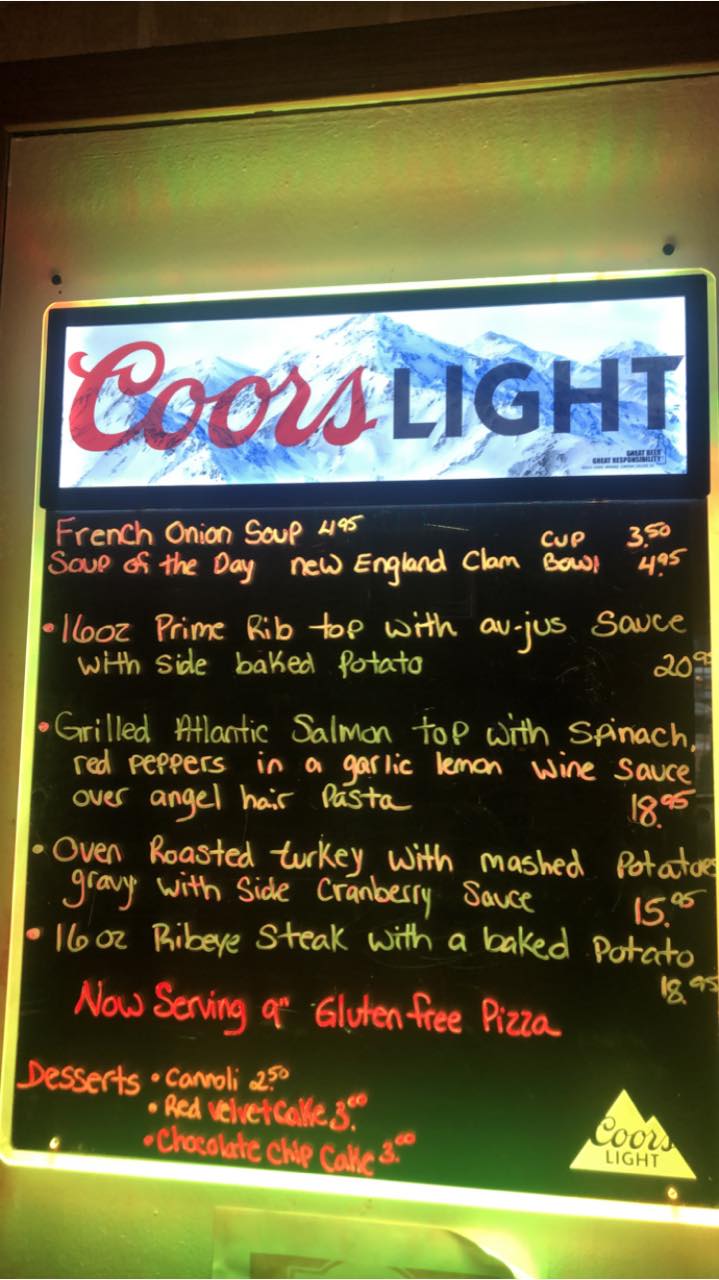 Coors LIGHT
GREAT BEER
GREAT RESPONSIBILITY
French Onion Soup 4.95 Cup 3.50
Soup of the Day new England Clam Bowl 4.95
• 16oz Prime Rib top with au-jus Sauce
with side baked Potato 20.95
• Grilled Atlantic Salmon top with Spinach,
red peppers in a garlic lemon wine sauce
over angel hair Pasta 18.95
• Oven Roasted turkey with mashed Potatoes
gravy with Side Cranberry Sauce 15.95
• 16oz Ribeye Steak with a baked Potato
18.95
Now Serving 9" Gluten-free Pizza
Desserts • Cannoli 2.50
• Red velvet Cake 3.00
• Chocolate Chip Cake 3.00
Coors
LIGHT